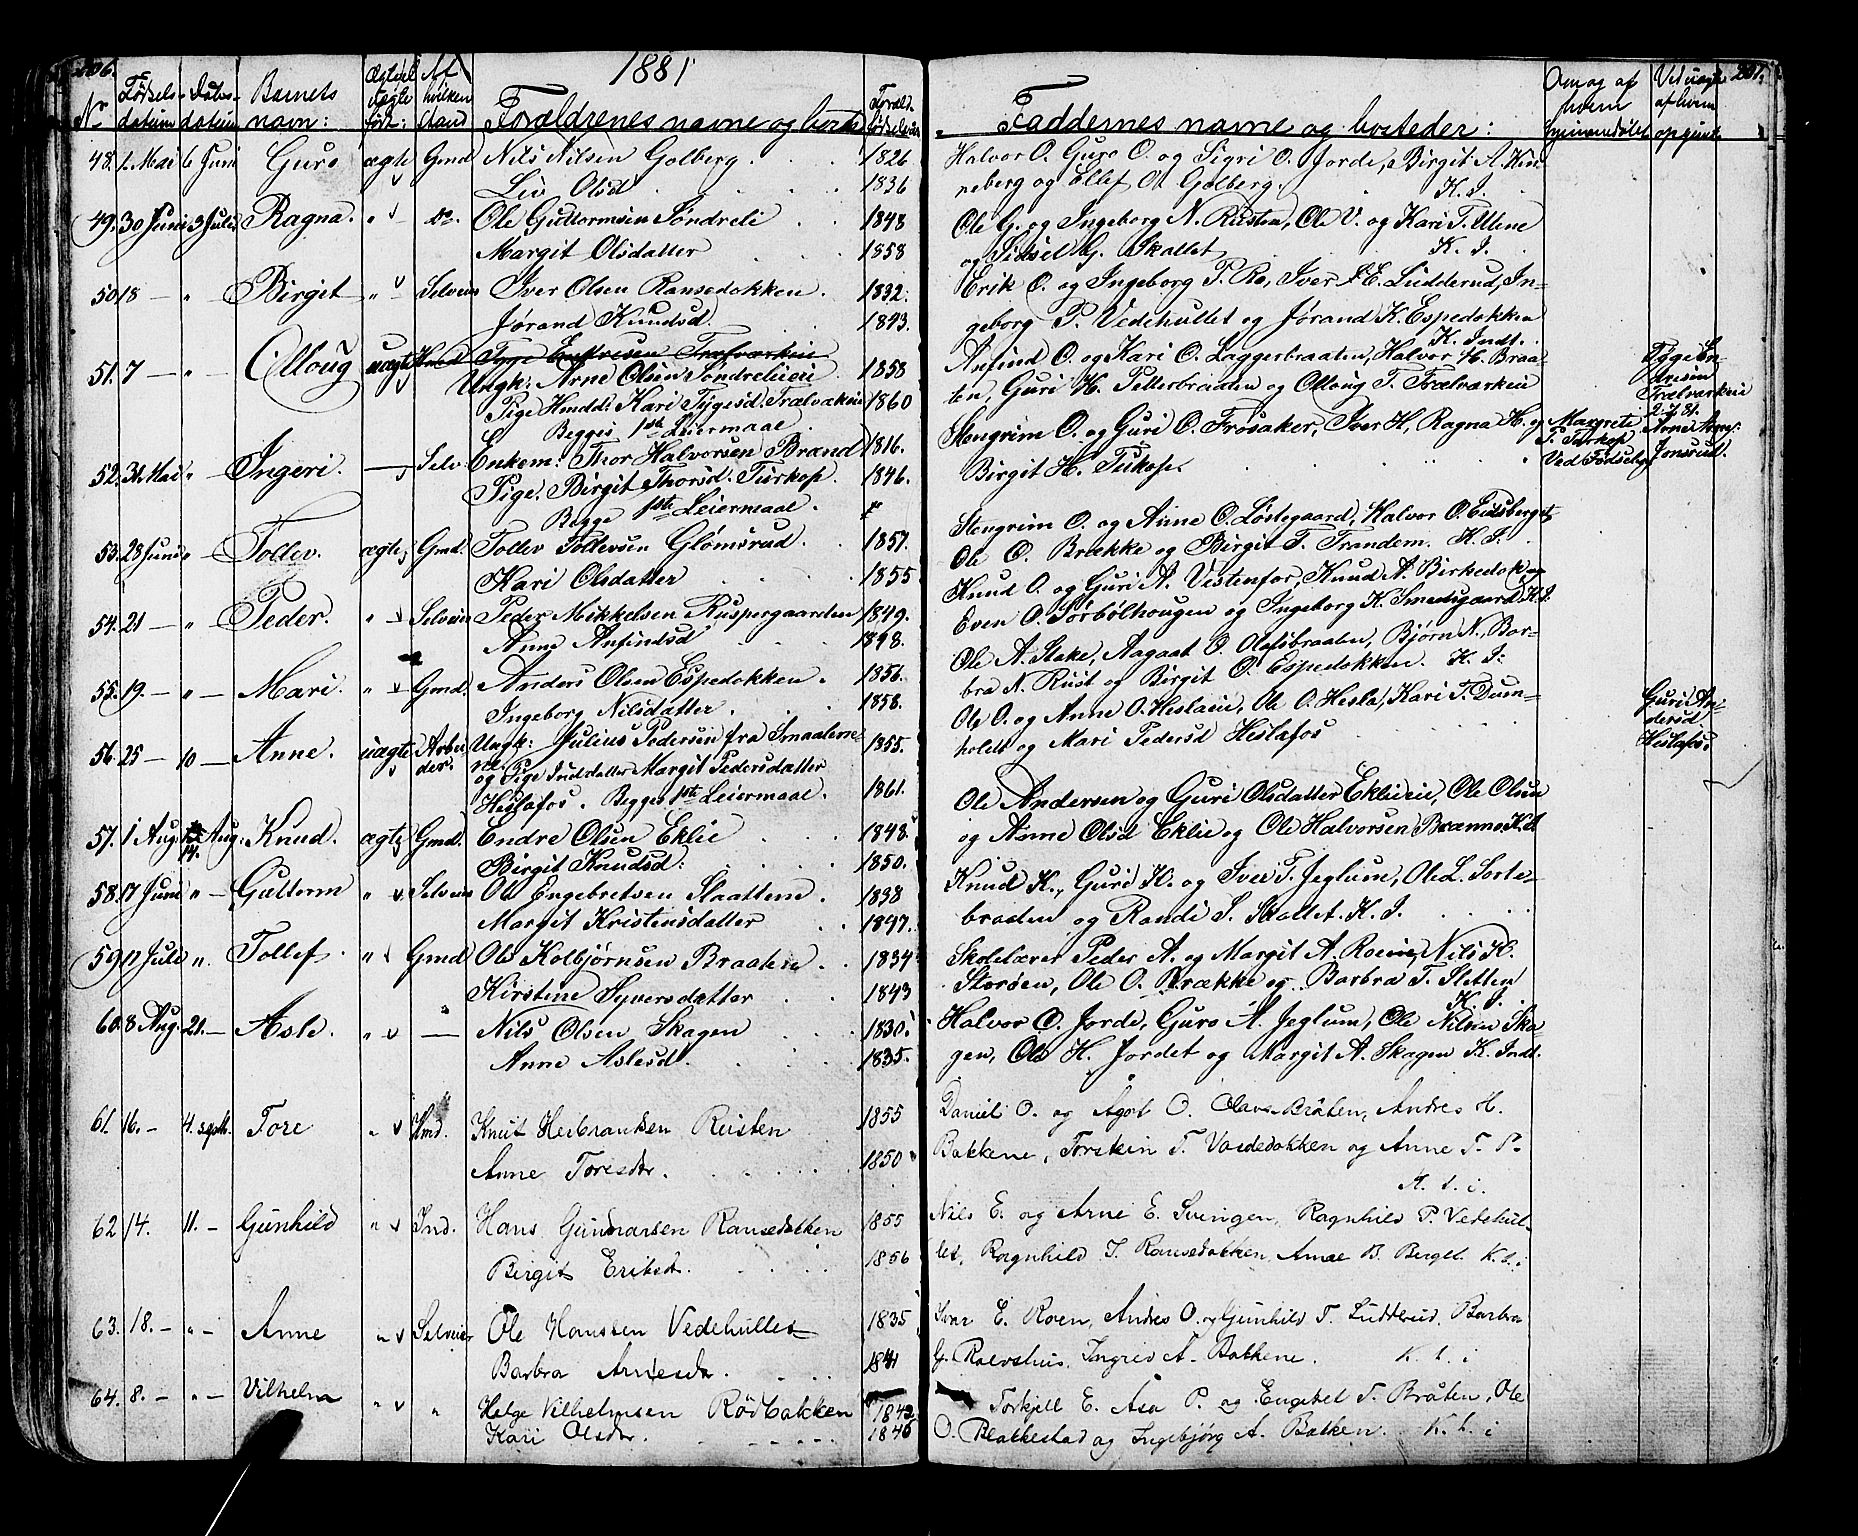 1881
No Fødsels- datum Daabs- datum Barnets navn: Ægte el. uægte født: Af hvilken Stand Forældrenes navne og bosted Foræld. fødselsaar
48. 1. Mai 6 Juni Guro ægte Gmd Nils Nilsen Golberg. 1826
Liv Olsd. 1836
49. 30 Juni 3 Juli Ragna. " do. Ole Guttormsen Søndreli 1848
Margit Olsdatter 1858
50. 18 — " — Birgit " Selveier Iver Olsen Ransedokken. 1832.
Jørand Knudsd. 1843.
51. 7 — " — Olloug uægte
Ungk: Arne Olsen Søndrelieie 1858
Pige Hmdd: Kari Tygesd. Trælvakeie 1860
Begges 1ste Leiermaal.
52. 31 Mai " Ingeri. — Selv. Enkem: Thor Halvorsen Brænd 1816.
Pige. Birgit Thorsd. Turkop. 1846.
Begge 1ste Leiermaal.
53. 28 Juni " — Tollev. ægte Gmd. Tollev Tollevsen Glømsrud. 1857.
Kari Olsdatter 1855
54. 21 — " — Peder. " Selveier Peder Mikkelsen Ruspergaarden 1849.
Anne Anfindsd 1848.
55. 19. — " — Mari. " Gmd. Anders Olsen Espedokken. 1856.
Ingeborg Nilsdatter. 1858.
56. 25 — 10 — Anne. uægte Arbeider. Ungk: Julius Pedersen fra Smaalene- 1855.
ne. og Pige Indsdatter Margit Pedersdatter
Heslafos. Begges 1ste Leiermaal. 1861.
57. 1 Aug. 14. Aug. Knud. ægte Gmd. Endre Olsen Eklie 1848.
Birgit Knudsd: 1850.
58. 17 Juni " — Guttorm " Selveier Ole Engebretsen Slaattem. 1838
Margit Kristensdatter 1847.
59. 17 Juli ". Tollef. " Gmd Ole Kolbjørnsen Braaten. 1834
Kirstine Syversdatter 1843
60. 8 Aug. 21. — Asle. " — Nils Olsen Skagen 1830.
Anne Aslesd. 1835.
61. 16. — 4. septb. Tore " Hmd. Knut Herbrandsen Rusten 1855
Anne Toresdr. 1850
62 14. 11. — Gunhild " Ind. Hans Gunnarsen Ransedokken 1855
Birgit Eriksd. 1856
63. 18. — " — Anne " Selveier Ole Hanssen Vedehullet 1835
Barbra Arnesdr. 1841
64. 8. — " — Vilhelm " " Helge Vilhelmsen Rødbakken 1842
Kari Olsdr. 1846
Faddernes navne og bosteder: Om og af hvem hjemmedøbt
Halvor O. Guro O. og Sigri O. Jorde, Birgit A. Kin-
neberg og Ellef O. Golberg. K. I.
Ole G. og Ingeborg N. Rusten, Ole V. og Kari T. Ulene
og Sidsel G. Skallet K. I.
Erik O. og Ingeborg P. Ro, Iver E. Ludderud, In-
geborg P. Vedehullet og Jørand K. Espedokken
K. Indt.
Anfind O. og Kari O. Laggerbraaten, Halvor H. Braa-
ten, Guri H. Pettersbraaten og Olloug T. Trælvækeie
Tyge En-
dresen
Trælvækeie
Stengrim O. og Guri O. Frøsaker, Iver H, Ragna H. og
Birgit H. Tukop. Margrete
T. Turkop
Ved Fødselen Jonsrud.
Stengrim O. og Anne O. Løstegaard, Halvor O. Eidsberget,
Ole O. Brække og Birgit T. Trandem. K. I.
Knud O. og Guri A. Vestenfor, Knud A. Birkedok. og
Even O. Sørbølhougen og Ingeborg K. Smedsgaard K. I.
Ole A. Stake, Aagaat O. Olefsbraaten, Bjørn N., Bar-
bra N. Rust og Birgit O. Espedokken. K. I.
Ole O. og Anne O. Heslaeie, Ole O. Hesla, Kari T. Dum-
holdt og Mari Pedersd Heslafos
Guri An-
dersd.
Heslafos.
Ole Andersen og Guri Olsdatter Eklieie, Ole Olsen
og Anne Olsd Eklie og Ole Halvorsen Brænno K. I
Knud K., Guri K. og Iver T. Jeglum, Ole L. Sorte-
braaten og Randi S. Skallet. K. I.
Skolelærer Peder A. og Margit A. Roeie, Nils H.
Storøen, Ole O. Brække og Barbra T. Sletten
K. I.
Halvor O. Jorde, Guro A. Jeglum, Ole Nilsen Ska-
gen, Ole H. Jordet og Margit A. Skagen K. Indt.
Daniel O. og Agot O. Olavsbråten, Andres H.
Bakkene, Torstein T. Vardedokken og Anne T. P.
K. t. i.
Nils E. og Arne E. Svingen, Ragnhild P. Vedehul-
let, Ragnhild I. Ransedokken, Arnee B. Berget. K. t. i
Ivar E. Roen, Andres O. og Gunhild T. Ludderud, Barbra
G. Roevshus, Ingrid A. Bakkene. K. t. i
Torkjell E. Åsa P. og Engebet T. Bråten, Ole
O. Blakkestad og Ingebjørg A. Bakken. K. t. i